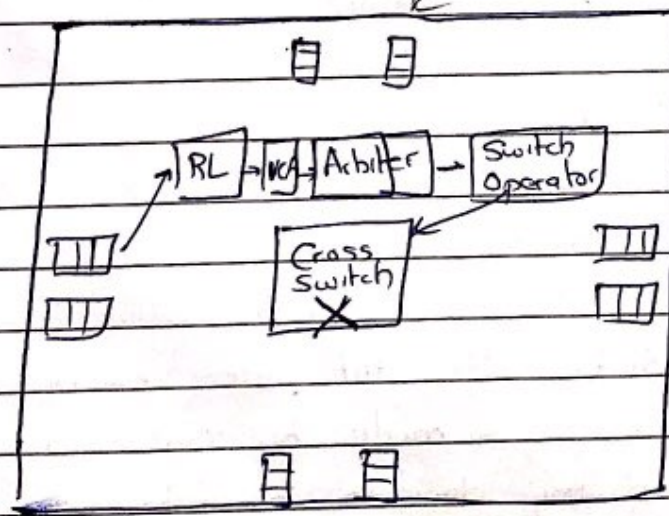 RL
VCA
Arbiter
Switch
Operator
Cross
Switch